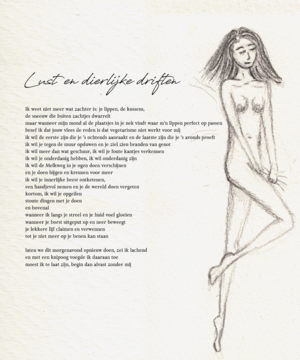 Lust en dierlijke driften
ik weet niet meer wat zachter is: je lippen, de kussens,
de sneeuw die buiten zachtjes dwarrelt
maar wanneer mijn mond al de plaatsjes in je nek vindt waar m'n lippen perfect op passen
besef ik dat jouw vlees de reden is dat vegetarisme niet werkt voor mij
ik wil de eerste zijn die je 's ochtends aanraakt en de laatste zijn die je 's avonds proeft
ik wil je tegen de muur opduwen en je ziel zien branden van genot
ik wil meer dan wat geschuur, ik wil je foute kantjes verkennen
ik wil je onderdanig hebben, ik wil onderdanig zijn
ik wil de Melkweg in je ogen doen verschijnen
en je doen hijgen en kreunen voor meer
ik wil je innerlijke beest ontketenen,
een handjevol nemen en je de wereld doen vergeten
kortom, ik wil je opgeilen
stoute dingen met je doen
en bovenal
wanneer ik langs je streel en je luid voel gloeien
wanneer je borst uitgeput op en neer beweegt
je lekkere lijf claimen en verwennen
tot je niet meer op je benen kan staan
laten we dit morgenavond opnieuw doen, zei ik lachend
en met een knipoog voegde ik daaraan toe
moest ik te laat zijn, begin dan alvast zonder mij